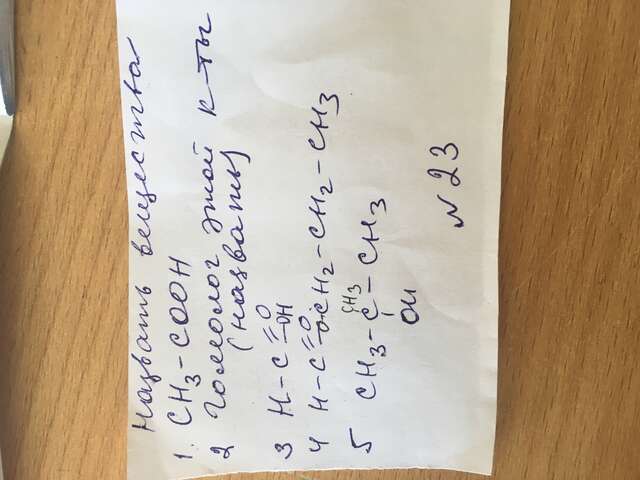 Назвать вещества
1. CH3-COOH
2 Гомолог этой к-ты
(назвать)
3 H-C=O-OH
4 H-C=O-O-CH2-CH2-CH3
CH3
5 CH3-C-CH3
OH
N 23